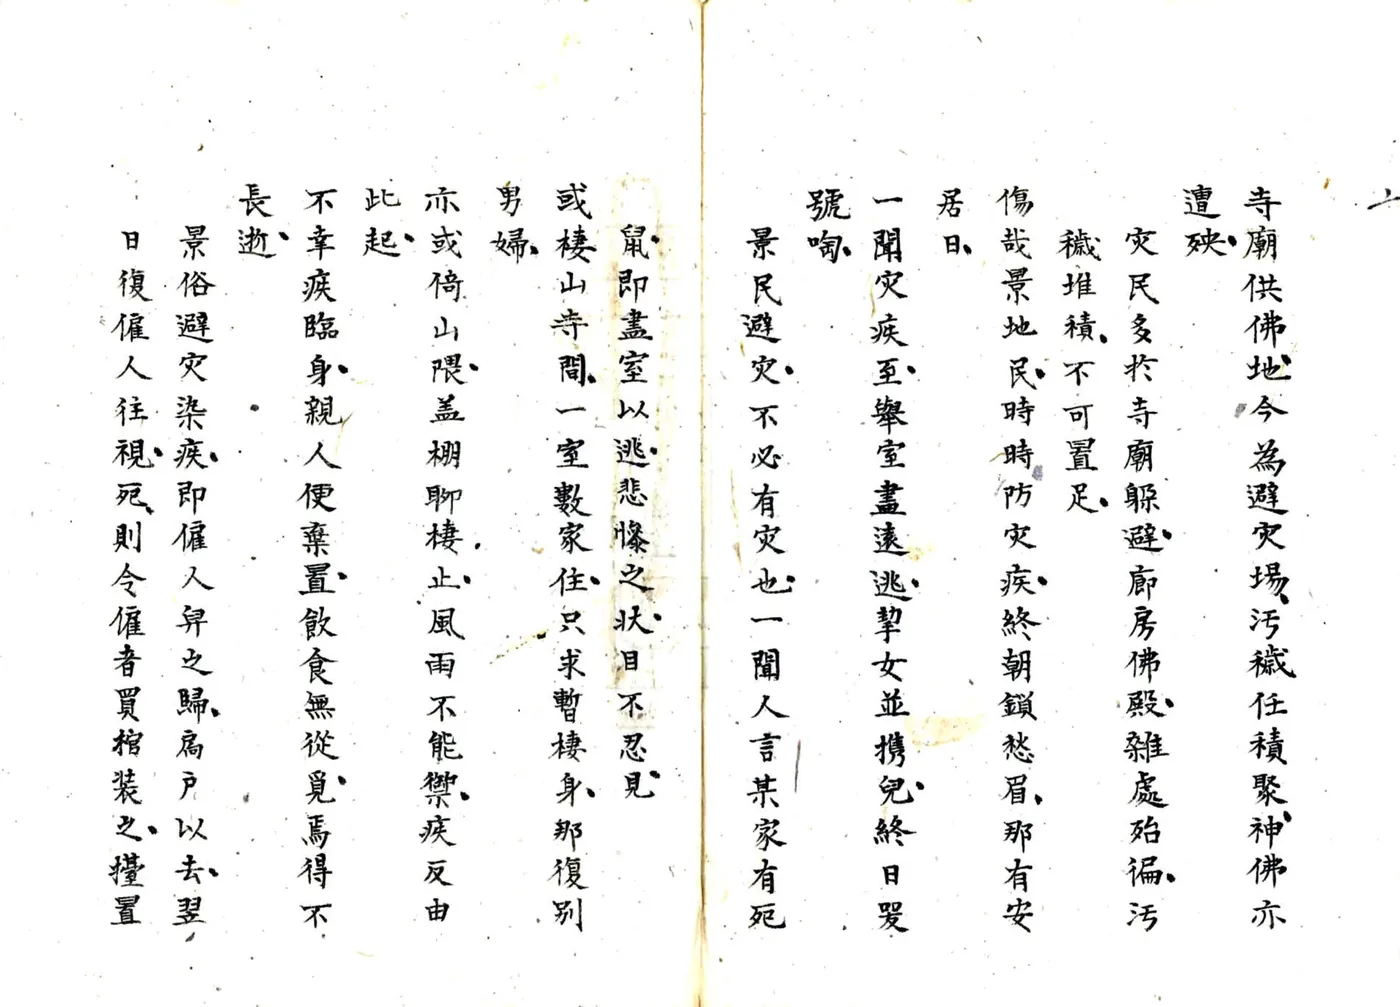 寺廟供佛地、今為避灾場、汚穢任積聚、神佛亦
遭殃、
灾民多於寺廟躲避、廊房佛殿、雜處殆徧、汚
穢堆積、不可置足、
傷哉景地民、時時防灾疾、終朝鎖愁眉、那有安
居日、
一聞灾疾至、舉室盡遠逃、挈女並携兒、終日哭
號啕、
景民避灾、不必有灾也、一聞人言某家有死
鼠、即盡室以逃、悲慘之状、目不忍見、
或棲山寺間、一室數家住、只求暫棲身、那復别
男婦、
亦或倚山隈、盖棚聊棲止、風雨不能禦、疾反由
此起、
不幸疾臨身、親人便棄置、飲食無從覓、焉得不
長逝、
景俗避灾染疾、即僱人舁之歸、扃户以去、翌
日復僱人往視、死則令僱者買棺装之、擡置